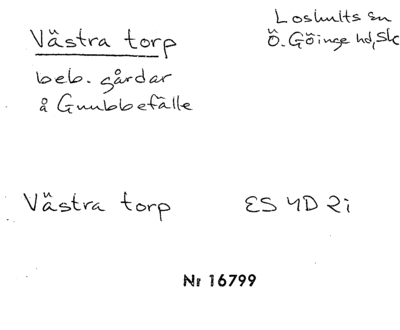 Västra torp
Loshults sn
Ö. Göinge hd, Sk
beb. gårdar
å Gnubbefälle
Västra torp ES 4D 2i
Nr 16799